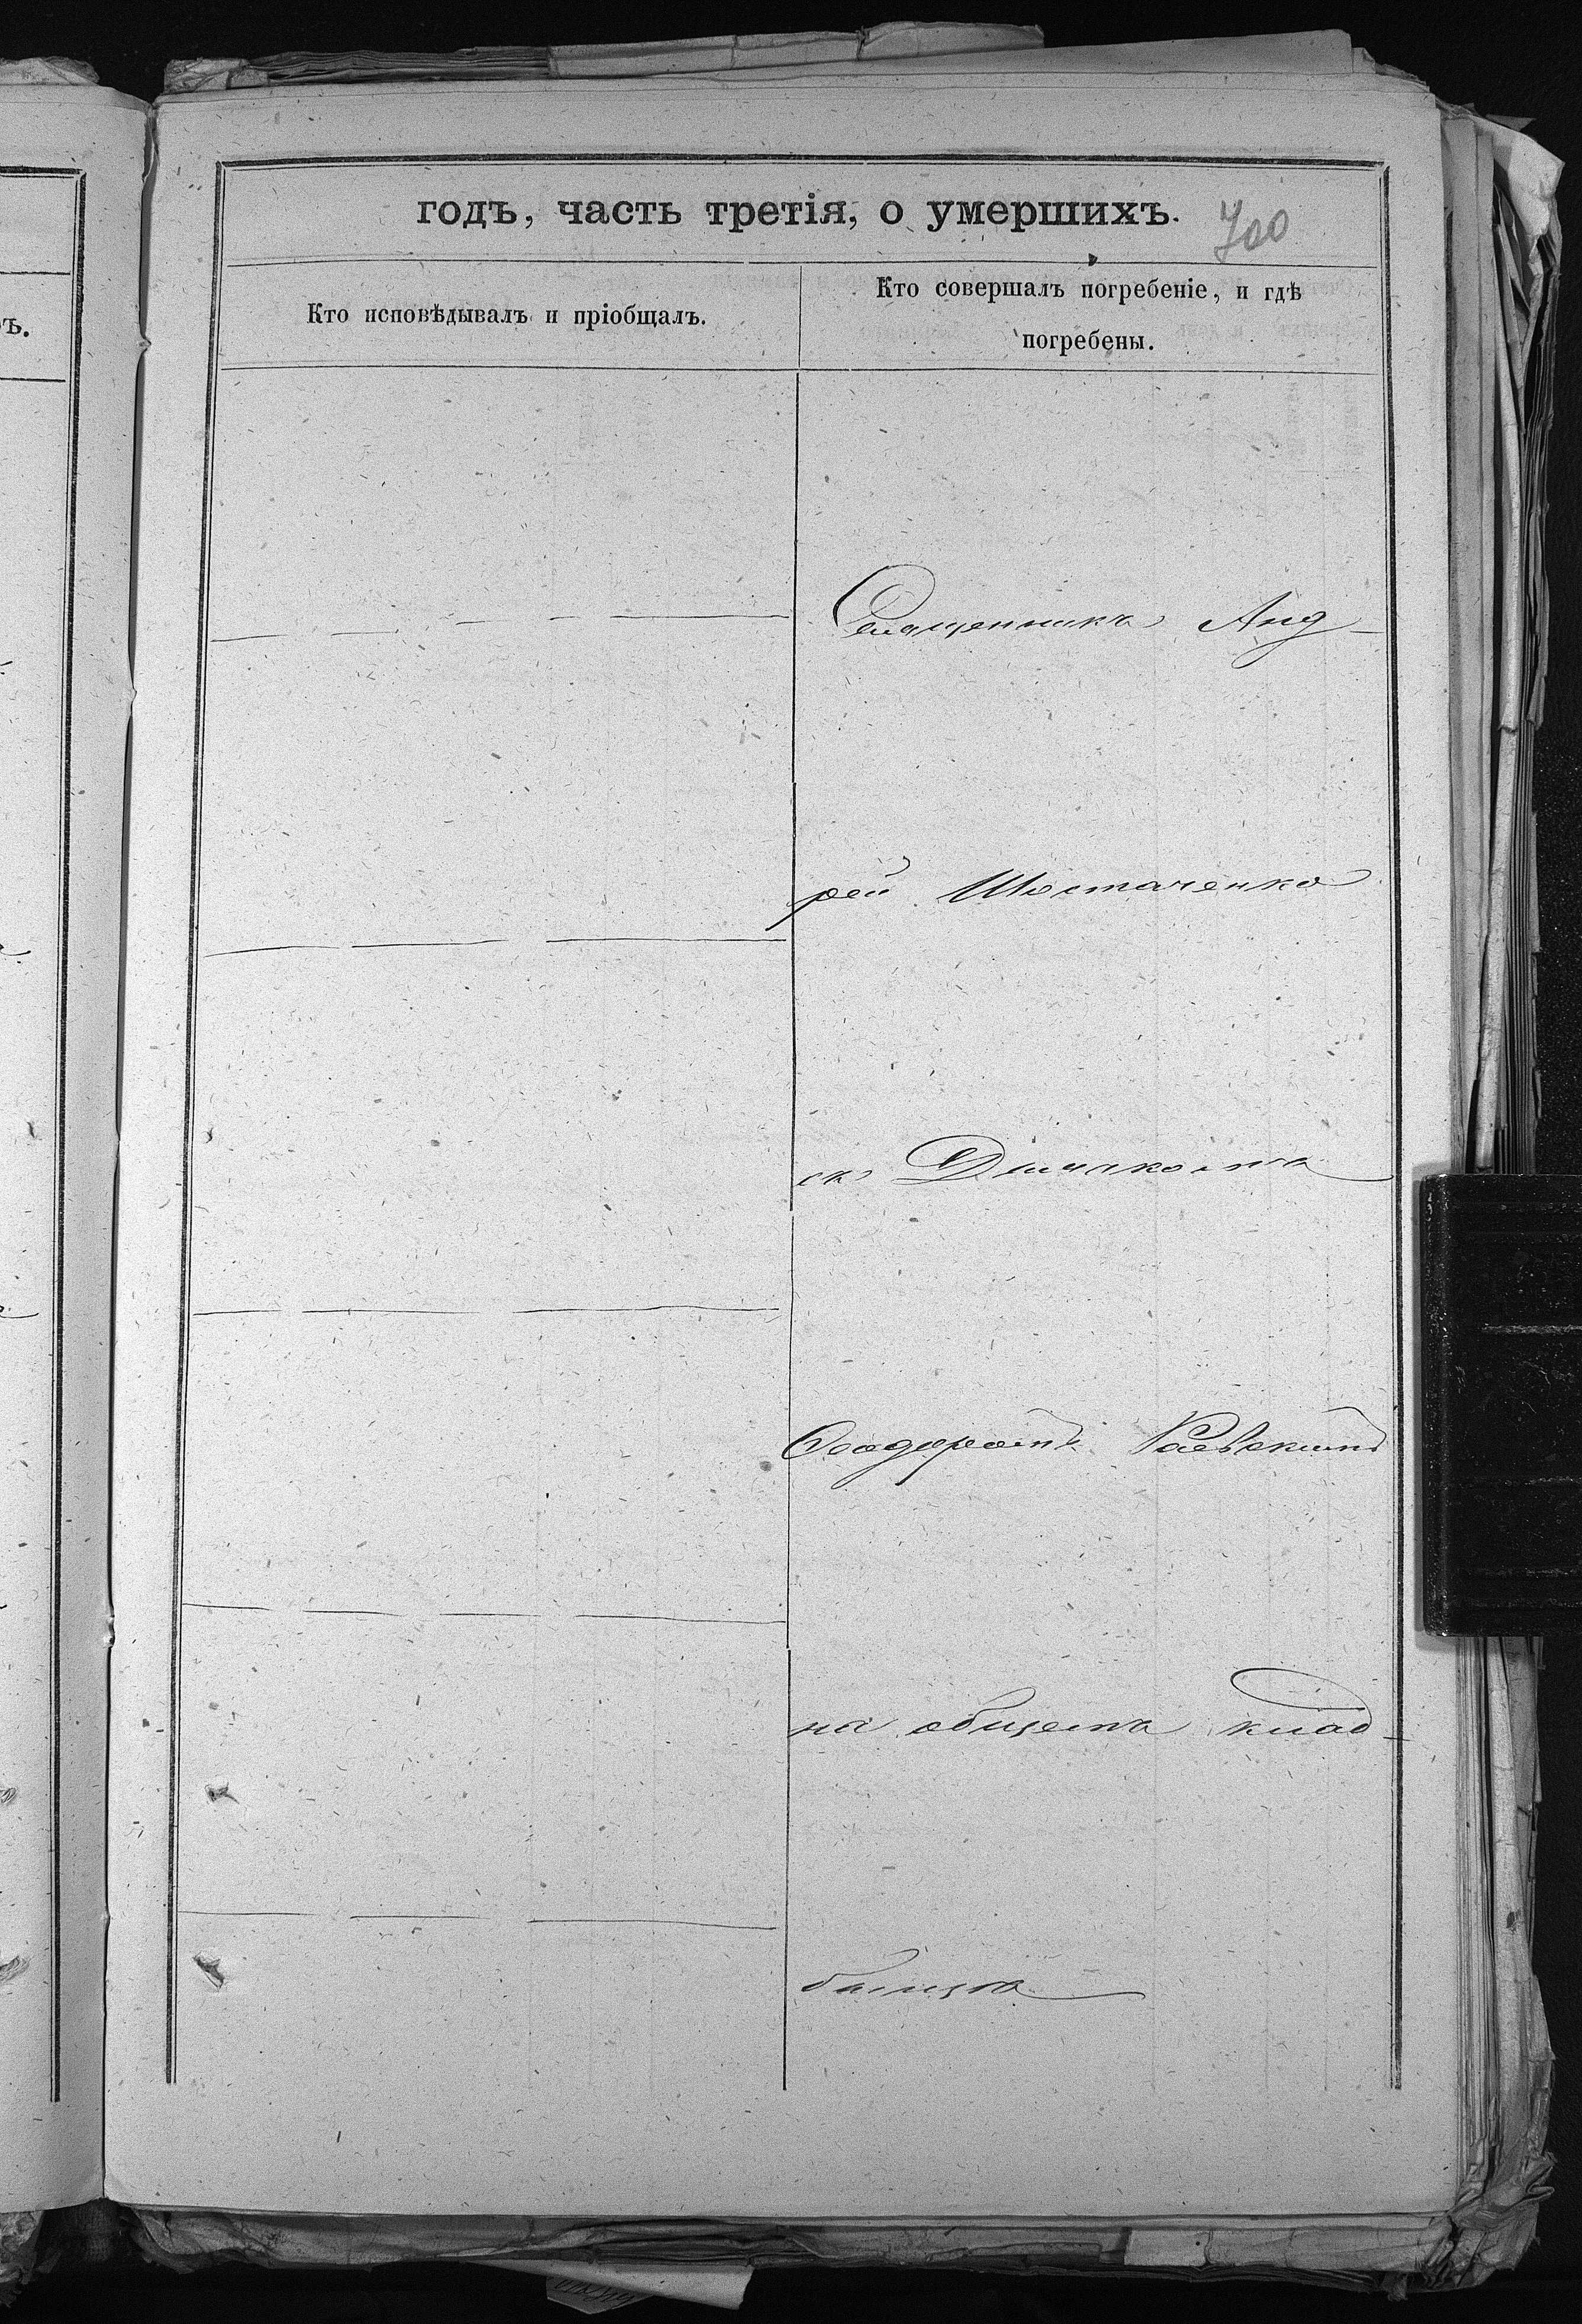 годъ, часть третія, о умершихъ.
700
Кто исповѣдывалъ и пріобщалъ.
Кто совершалъ погребеніе, и гдѣ
погребены.
Священникъ Анд-
рей Шостаченко
съ Дьячкомъ
Ѳеодоромъ Раевскимъ
на общемъ клад-
бищѣ
ъ.